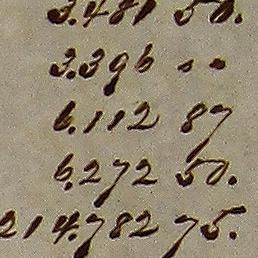 3.481 50.
3.396 " "
6.112 87
6.272 50.
214.782 75.